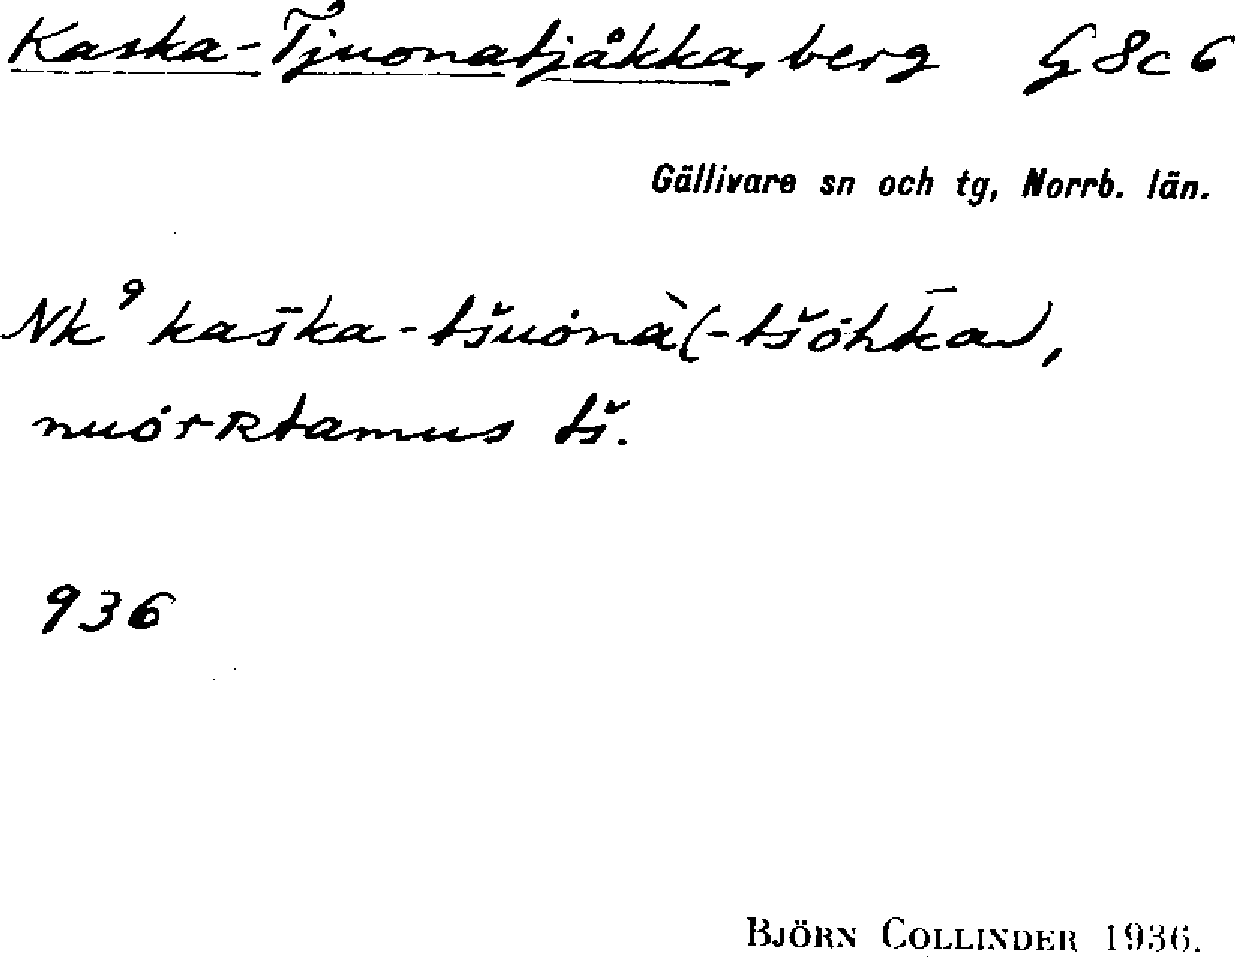 Kaska-Tjuonatjåkka, berg G 8c 6
Gällivare sn och tg, Norrb. län.
Nk⁹ kas̄ka-tšuȯnà(-tšȯhk̄a),
nuȯrRtamus tš.
936
BJÖRN COLLINDER 1936.